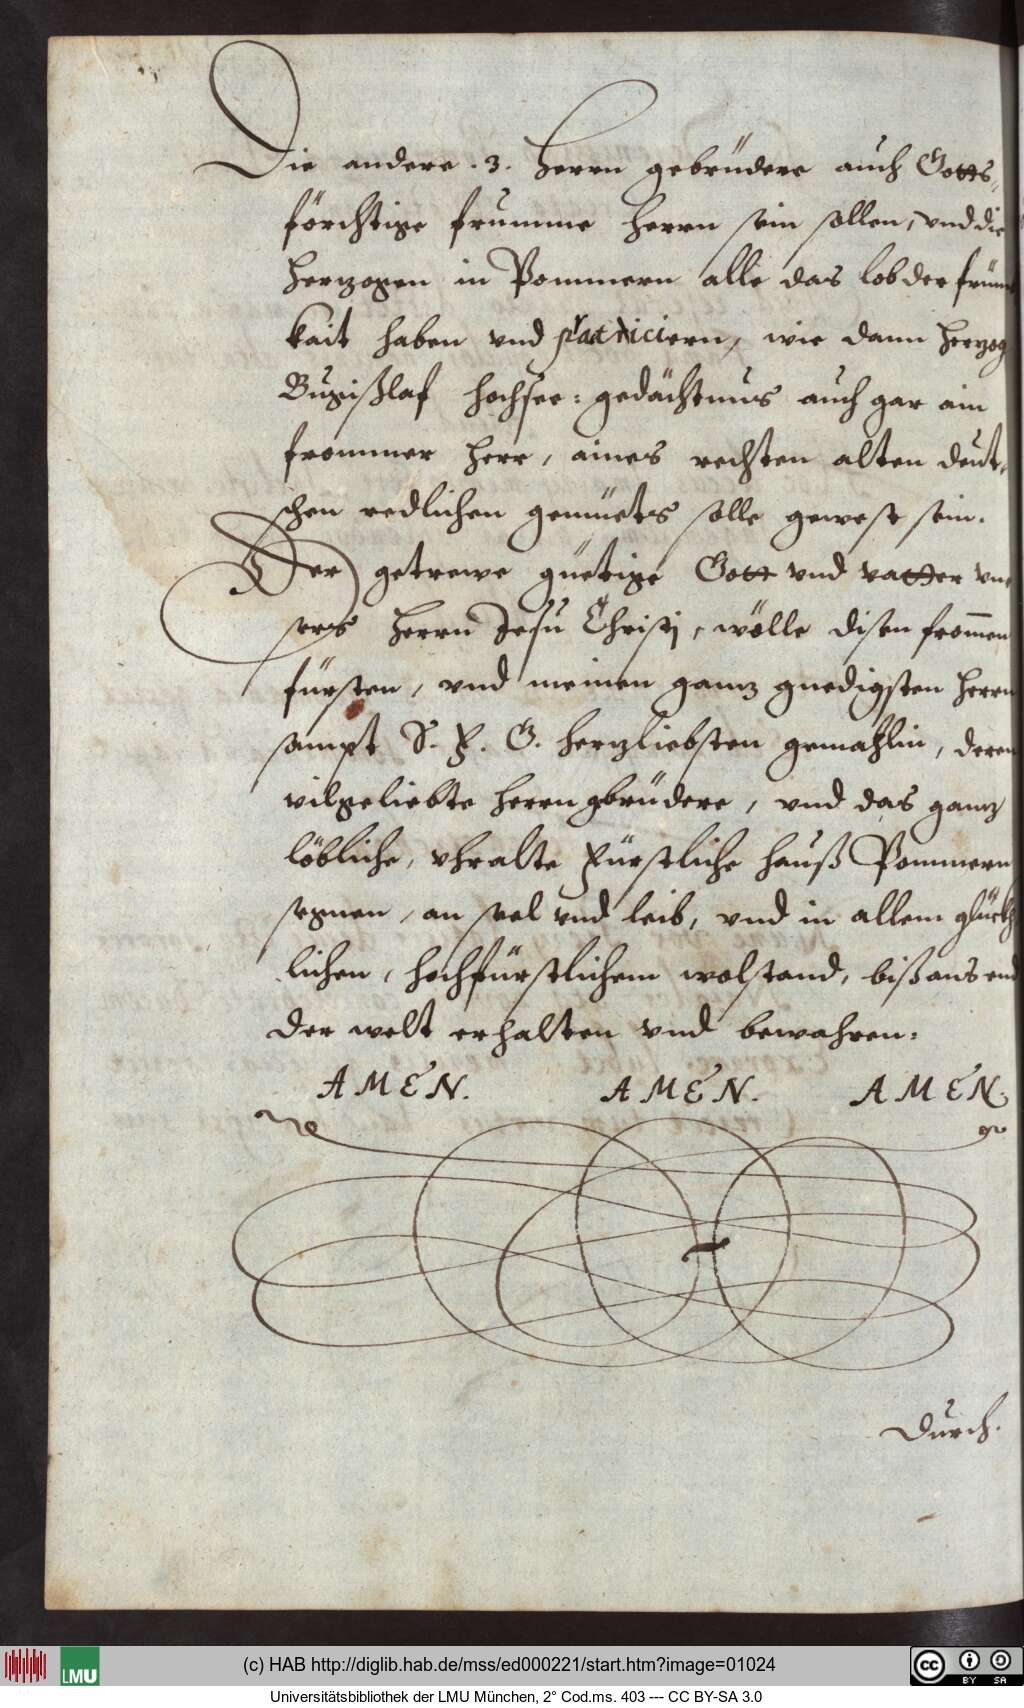 Die andere .3. Herrn gebrüdere auch Gotts=
förchtige frumme Herrn sein sollen, vnd die
Herzogen in Pommern alle das lob der frum
kait haben vnd practiciern, wie dann Herzog
Bugißlaf hochsee: gedächtnus auch gar ain
frommer Herr, aines rechten alten deut=
schen redlichen gemüets solle gewest sein.
Der getrewe güetige Gott vnd vatter vn
sers Herrn Jesu Christj, wölle disen from̄en
fürsten, vnd meinen ganz gnedigsten Herrn
sampt S. F. G. herzliebsten gemahlin, deren
vilgeliebte Herrn gbrüdere, vnd das ganz
löbliche, vhralte Fürstliche hauß Pommern
segnen, an seel vnd leib, vnd in allem glückh
lichen, hochfürstlichem wolstand, biß ans end
der welt erhalten vnd bewahren:
AMEN. AMEN. AMEN.
Durch.
LMU
(c) HAB http://diglib.hab.de/mss/ed000221/start.htm?image=01024
cc BY SA
Universitätsbibliothek der LMU München, 2° Cod.ms. 403 --- CC BY-SA 3.0